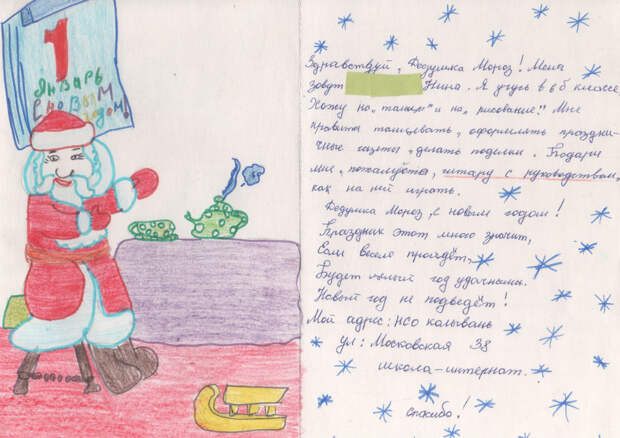 1
Январь
С новым
годом!
Здравствуй, Дедушка Мороз! Меня
зовут Нина. Я учусь в 6 классе,
Хожу на "танцы" и на "рисование". Мне
нравиться танцевать, оформлять празднич-
ные газеты, делать поделки. Подари
мне, пожалуйста, гитару с руководством,
как на ней играть.
Дедушка Мороз, с новым годом!
Праздник этот много значит,
Если весело пройдёт,
Будет целый год удачным.
Новый год не подведёт!
Мой адрес: НСО Колывань
ул: Московская 38
школа-интернат.
Спасибо!